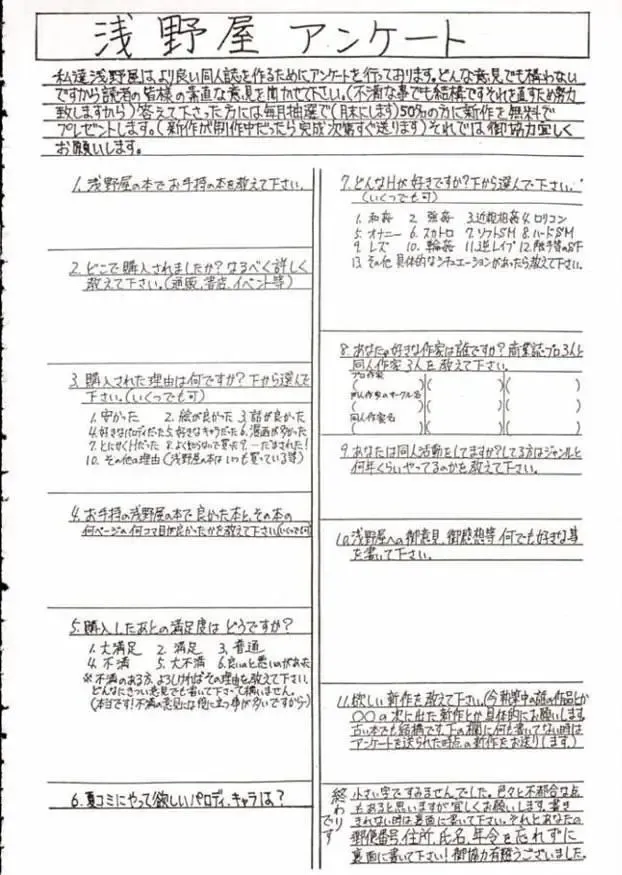 浅野屋 アンケート
私達浅野屋は、より良い同人誌を作るためにアンケートを行っております。どんな意見でも構わない
ですから読者の皆様の素直な意見を聞かせて下さい。(不満な事でも結構ですそれを直すため努力
致しますから)答えて下さった方には毎月抽選で(月末にします)50名の方に新作を無料で
プレゼントします。(新作が制作中だったら完成次第すぐ送ります)それでは御協力宜しく
お願いします。
1. 浅野屋の本でお手持の本を教えて下さい。
2. どこで購入されましたか?なるべく詳しく
教えて下さい。(通販、書店、イベント等)
3. 購入された理由は何ですか?下から選んで
下さい。(いくつでも可)
1. 安かった 2. 絵が良かった 3. 話が良かった
4. 好きなパロディだった 5. 好きなキャラだった 6. 漫画が多かった
7. とにかくHだった 8. よく知らないで買った 9. ーだまされた!
10. その他の理由(浅野屋の本はいつも買っている等)
4. お手持の浅野屋の本で良かった本と、その本の
何ページの何コマ目が良かったかを教えて下さい(いくつでも可)
5. 購入したあとの満足度はどうですか?
1. 大満足 2. 満足 3. 普通
4. 不満 5. 大不満 6. 良いのと悪いのがあった
※不満のある方、よろしければその理由を教えて下さい。
どんなにきつい意見でも書いて下さって構いません。
(本当です!不満の意見には役に立つ事が多いですから)
6. 夏コミにやって欲しいパロディ、キャラは?
7. どんなHが好きですか?下から選んで下さい。
(いくつでも可)
1. 和姦 2. 強姦 3. 近親相姦 4. ロリコン
5. オナニー 6. スカトロ 7. ソフトSM 8. ハードSM
9. レズ 10. 輪姦 11. 逆レイプ 12.
13. その他 具体的なシチュエーションがあったら教えて下さい。
8. あなたの好きな作家は誰ですか?商業誌・プロ3人と
同人作家3人を教えて下さい。
プロ作家
( )( )( )
同人作家のサークル名
( )( )( )
同人作家名
( )( )( )
9. あなたは同人活動をしてますか?してる方はジャンルと
何年くらいやってるのかを教えて下さい。
10. 浅野屋への御意見、御感想等何でも好きな事
を書いて下さい。
11. 欲しい新作を教えて下さい。(今執筆中の謎の作品とか
〇〇の次に出た新作とか具体的にお願いします。
古い本でも結構です。下の欄に何も書いてない時は
アンケートを送られた時点の新作をお送りします)
終わりです
小さい字ですみませんでした。色々と不都合な点
もあると思いますが宜しくお願いします。書き
きれない時は裏面に書いて下さい。それとあなたの
郵便番号、住所、氏名、年令を忘れずに
裏面に書いて下さい!御協力有難うございました。